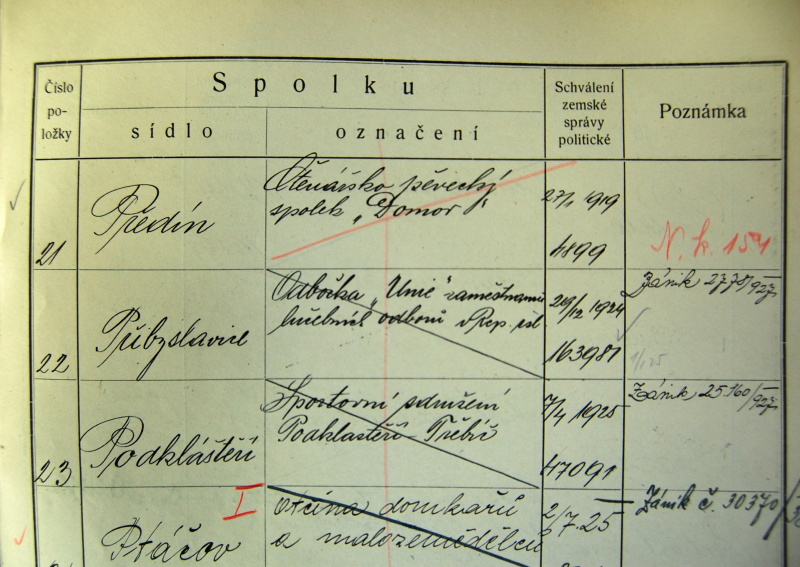 Číslo
po-
ložky
Spolku
sídlo
označení
Schválení
zemské
správy
politické
Poznámka
21
Předín
Čtenářsko pěvecký
spolek „Domov"
27/1 1919
4899
N. k. 154
22
Přibyslavice
Odbočka „Unie" zaměstnanců
hudebních odborů v Rep. čsl
29/12 1924
163981
Zánik 2770/927
1/125
23
Podkláštěří
Sportovní sdružení
Podklášteří - Třebíč
7/4 1925
47091
Zánik 25160/927
I
Ptáčov
domkařů
a malozemědělců
2/7.25
Zánik č. 30370